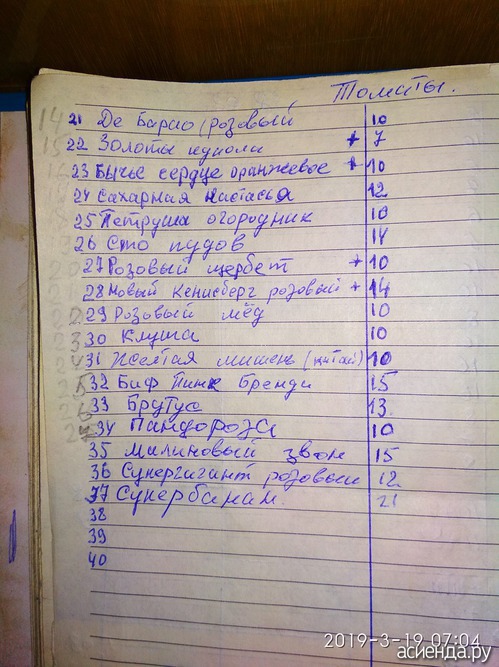 Томаты.
21 Де Барао (розовый 10
22 Золотые купола + 7
23 Бычье сердце оранжевое + 10
24 Сахарная Настасья 12
25 Петруша огородник 10
26 Сто пудов 14
27 Розовый щербет + 10
28 Новый Кенисберг розовый + 14
29 Розовый мёд 10
30 Клуша 10
31 Желтая мишень (китай) 10
32 Биф Пинк Бренди 15
33 Брутус 13
34 Пандороза 10
35 Малиновый звон 15
36 Супергигант розовый 12
37 Супербанан 21
38
39
40
2019-3-19 07:04
асиенда.ру